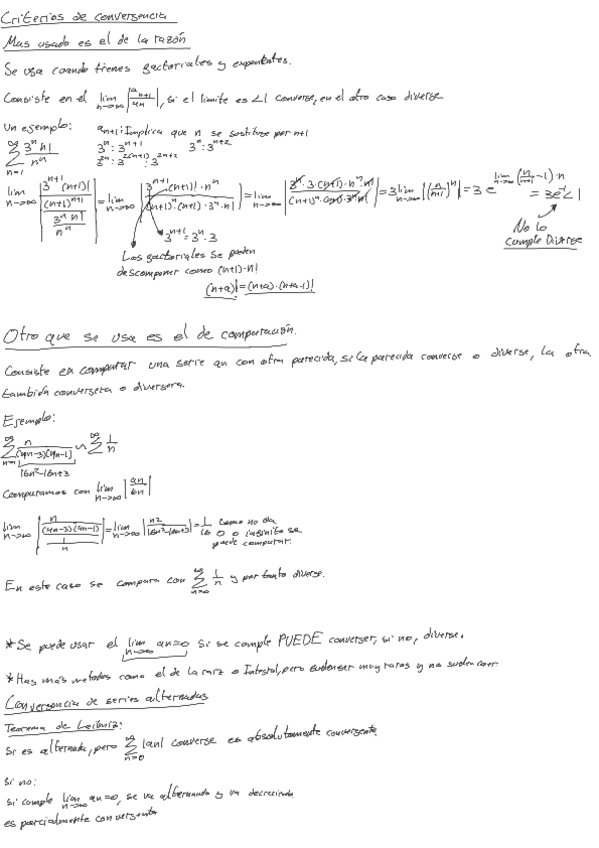 Criterios de convergencia
Mas usado es el de la razón
Se usa cuando tienes factoriales y exponentes.
Consiste en el lim n->∞ |a_{n+1}/a_n|, si el limite es <1 converge, en el otro caso diverge
Un ejemplo: a_{n+1}: Implica que n se sustituye por n+1
∑_{n=1}^{∞} 3^n n!/n^n 3^n : 3^{n+1} 3^n : 3^{n+2}
3^{2n} : 3^{2(n+1)} : 3^{2n+2}
lim n->∞ |(3^{n+1} (n+1)!/(n+1)^{n+1})/(3^n n!/n^n)| = lim n->∞ |3^{n+1} (n+1)! · n^n/((n+1)^n (n+1) · 3^n · n!)| = lim n->∞ |3^n · 3 · (n+1) · n^n · n!/((n+1)^n · (n+1) · 3^n n!)| = 3 lim n->∞ |(n/(n+1))^n| = 3 e^{lim n->∞ (n/(n+1) -1) · n} = 3e^{-1} < 1
3^{n+1} = 3^n · 3
No lo
cumple Diverge
Los factoriales se pueden
descomponer como (n+1) · n!
(n+a)! = (n+a) · (n+a-1)!
Otro que se usa es el de comparación.
Consiste en comparar una serie an con otra parecida, si la parecida converge o diverge, la otra
también convergera o divergera.
Ejemplo:
∑_{n=1}^{∞} n/((4n-3)(4n-1)) ~ ∑^{∞} 1/n
16n²-16n+3
Comparamos con lim n->∞ |an/bn|
lim n->∞ |(n/((4n-3)(4n-1)))/(1/n)| = lim n->∞ |n²/(16n²-16n+3)| = 1/16 como no da
0 o infinito se
puede comparar.
En este caso se compara con ∑_{n=0}^{∞} 1/n y por tanto diverge.
*Se puede usar el lim n->∞ an=0 si se cumple PUEDE converger, si no, diverge.
*Hay más metodos como el de la raiz o Integral, pero suelen ser muy raros y no suelen caer
Convergencia de series alternadas
Teorema de Leibniz:
Si es alternada, pero ∑_{n=0}^{∞} |an| converge es absolutamente convergente.
Si no:
si cumple lim n->∞ an=0, se va alternando y va decreciendo
es parcialmente convergente